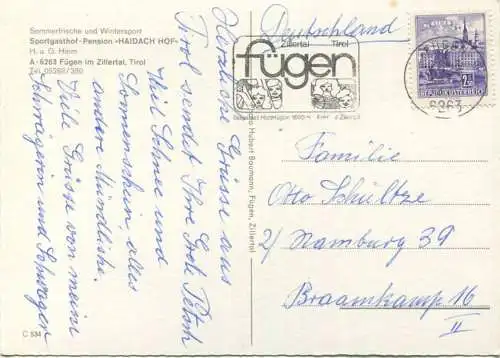 Sommerfrische und Wintersport
Sportgasthof-Pension »HAIDACH HOF«
H. u. G. Heim
A-6263 Fügen im Zillertal, Tirol
Tel. 05288/380
Herzliche Grüsse aus
Tirol sendet Ihre Grete Petsch
Viel Schnee und
Sonnenschein, alles
andere Mündlich.
Viele Grüsse von mein
Schwägerin und Schwager
C 534
Hubert Baumann, Fügen, Zillertal
Deutschland
Zillertal Tirol
fügen
6263
REPUBLIK ÖSTERREICH
Familie
Otto Schültze
2/ Hamburg 39
Braamkamp 16
II